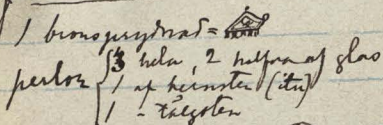 1 bronsprydnad =
perlor { 3 hela, 2 halfva af glas
1 af bernsten (itu)
1 - tälgsten